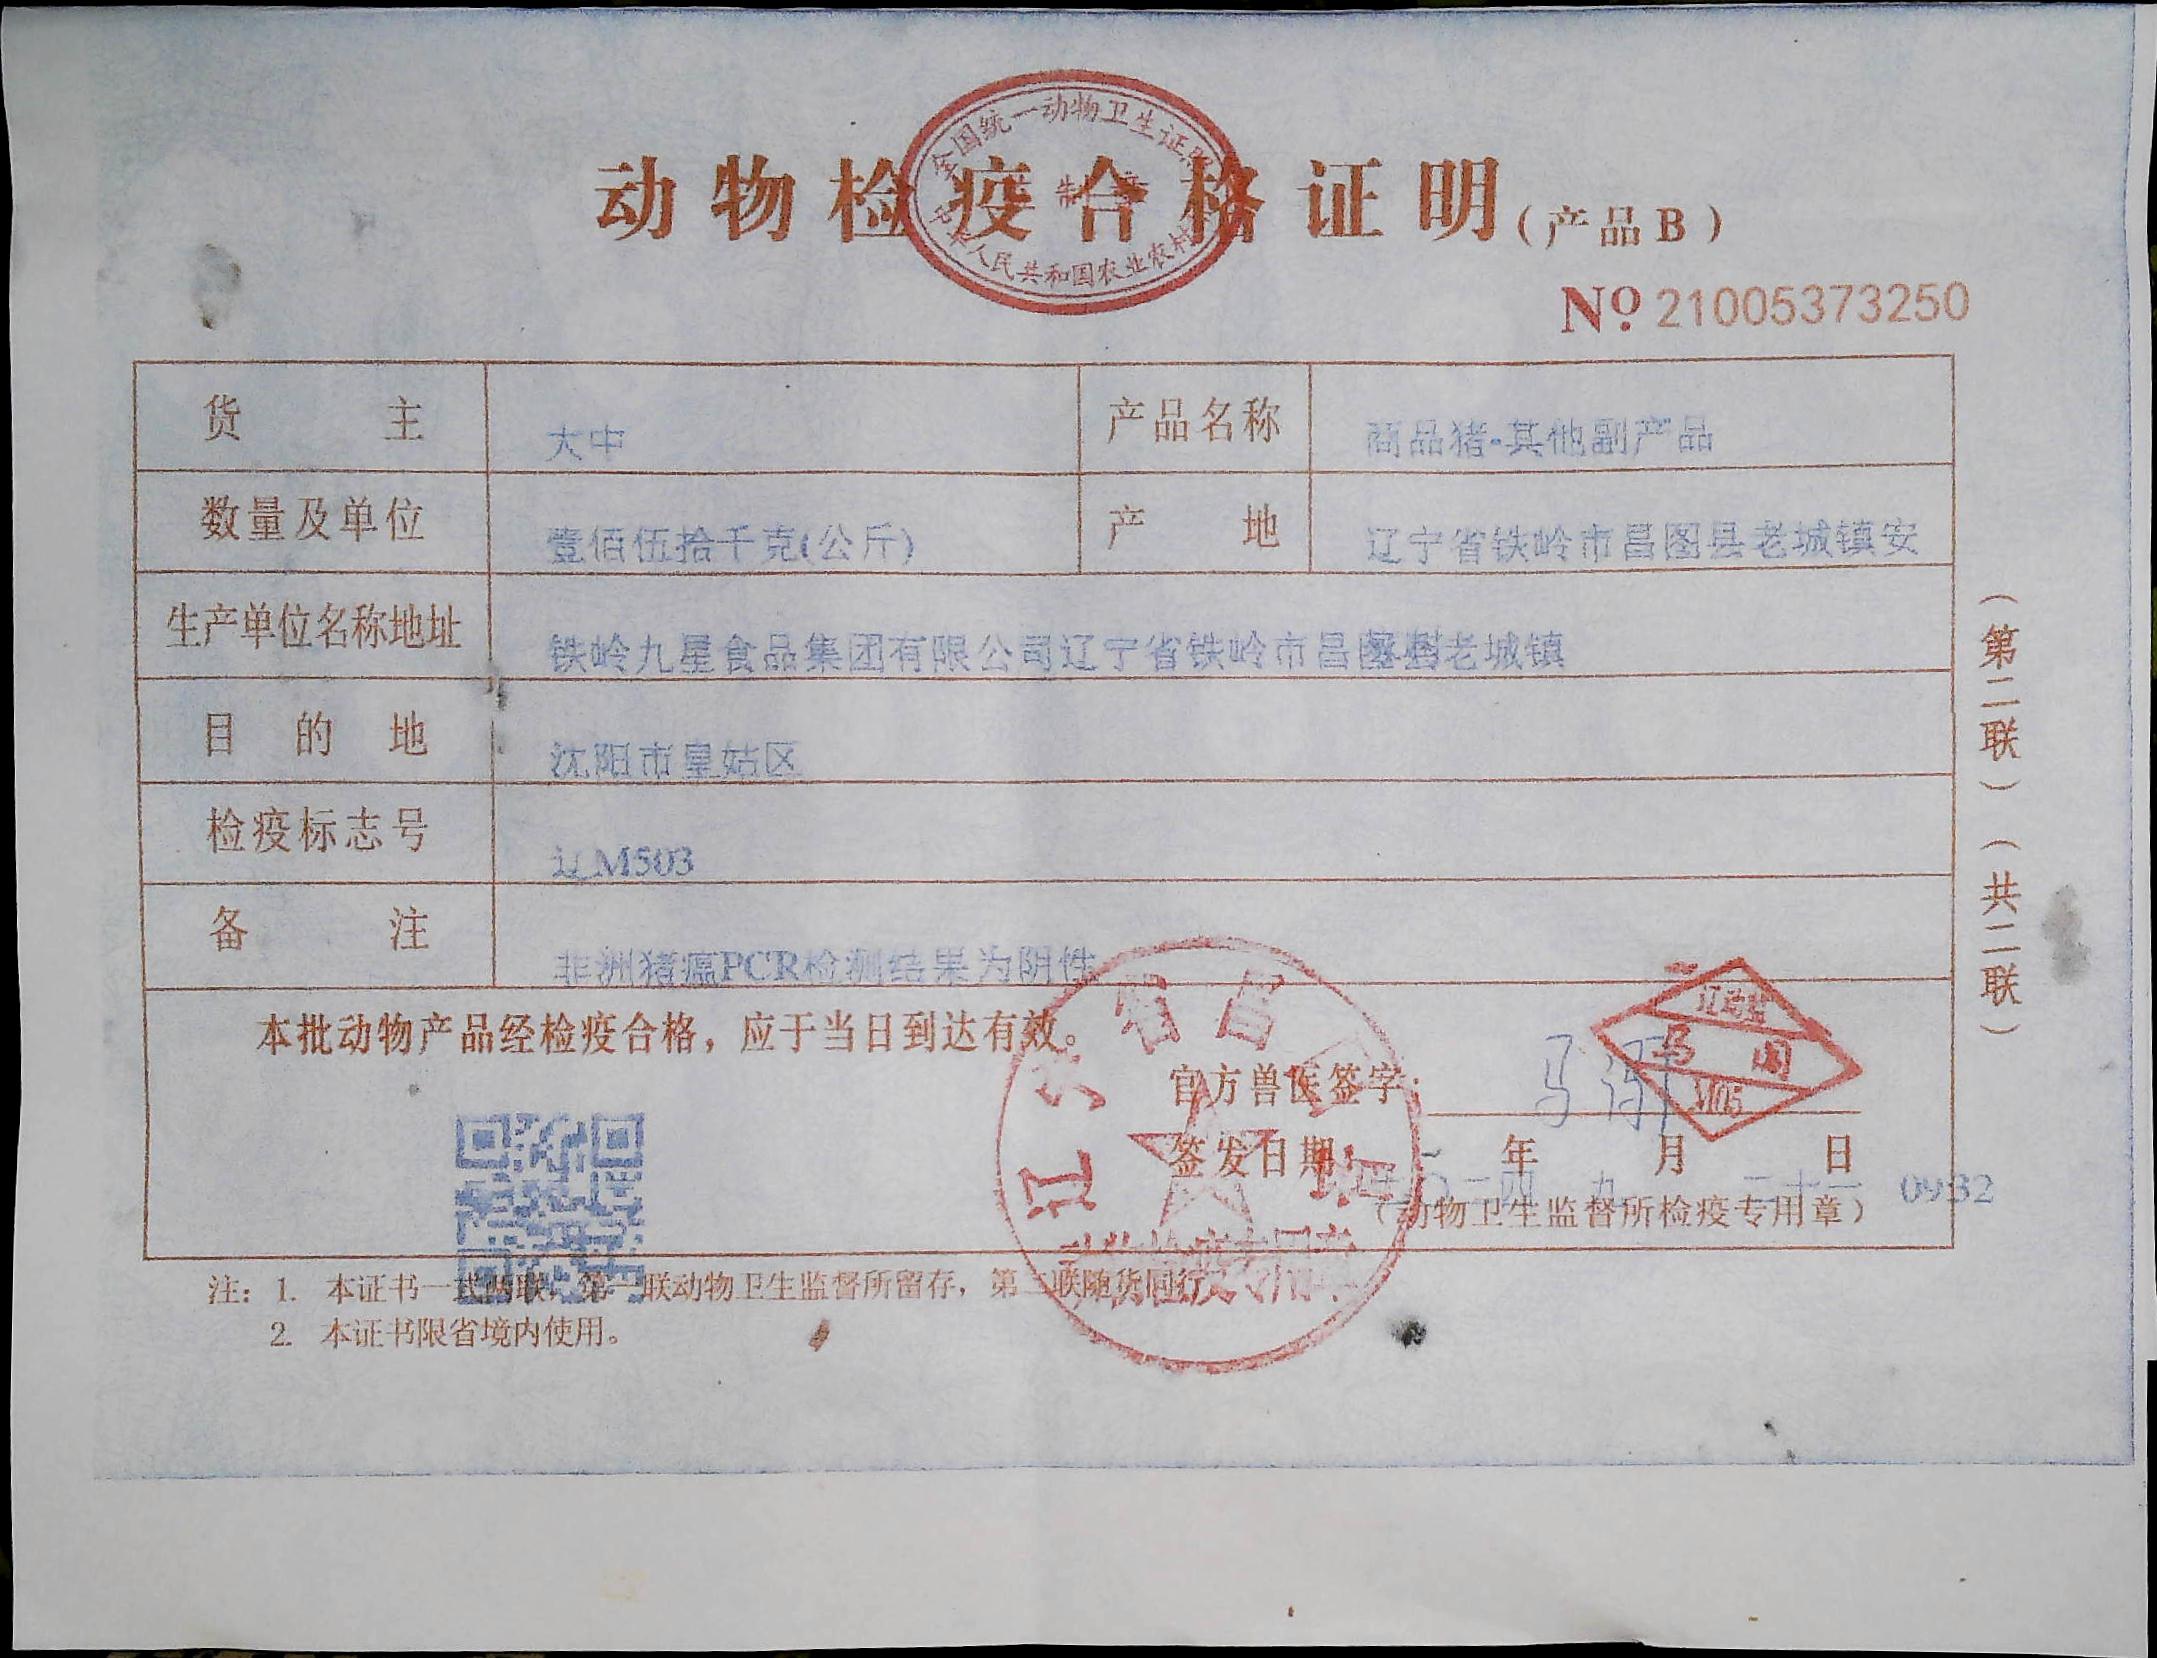 全国统一动物卫生证照
动物检疫合格证明(产品B)
中华人民共和国农业农村
№ 21005373250
货主 大中 产品名称 商品猪-其他副产品
数量及单位 壹佰伍拾千克(公斤) 产地 辽宁省铁岭市昌图县老城镇安
生产单位名称地址 铁岭九星食品集团有限公司辽宁省铁岭市昌图县老城镇
目的地 沈阳市皇姑区
检疫标志号 辽M503
备注 非洲猪瘟PCR检测结果为阴性
(第二联)(共二联)
本批动物产品经检疫合格，应于当日到达有效。
官方兽医签字：
马
M05
签发日期： 年 月 日
二四 九 二十 0932
(动物卫生监督所检疫专用章)
辽宁省昌
动物检疫专用章
注：1. 本证书一式两联，第一联动物卫生监督所留存，第二联随货同行
2. 本证书限省境内使用。